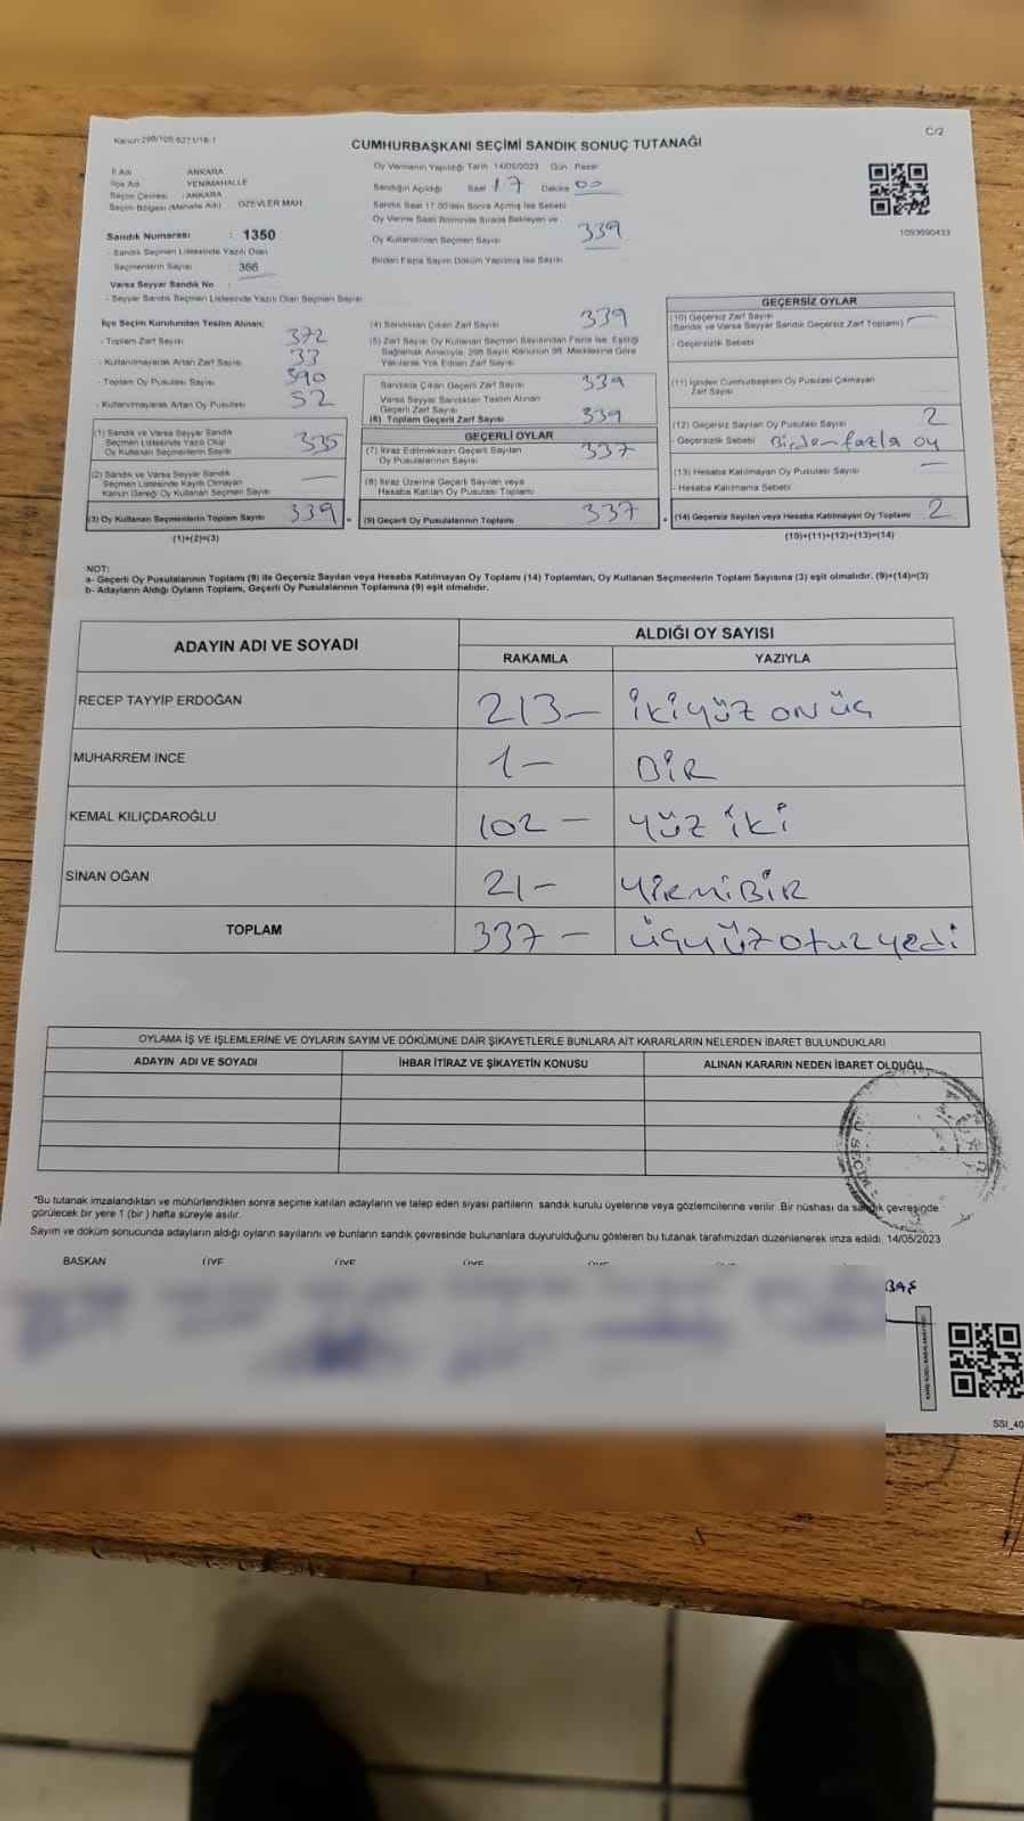 Kanun:298/105-6271/18-1
C/2
CUMHURBAŞKANI SEÇİMİ SANDIK SONUÇ TUTANAĞI
İl Adı : ANKARA
İlçe Adı : YENİMAHALLE
Seçim Çevresi : ANKARA
Seçim Bölgesi (Mahalle Adı) : ÖZEVLER MAH
Sandık Numarası : 1350
- Sandık Seçmen Listesinde Yazılı Olan
Seçmenlerin Sayısı : 366
Varsa Seyyar Sandık No :
- Seyyar Sandık Seçmen Listesinde Yazılı Olan Seçmen Sayısı
Oy Vermenin Yapıldığı Tarih 14/05/2023 Gün Pazar
Sandığın Açıldığı Saat 17 Dakika 00
Sandık Saat 17.00'den Sonra Açılmış İse Sebebi
Oy Verme Saati Bitiminde Sırada Bekleyen ve
Oy Kullanan Seçmen Sayısı 339
Birden Fazla Sayım Döküm Yapılmış İse Sayısı
1093690433
İlçe Seçim Kurulundan Teslim Alınan;
- Toplam Zarf Sayısı 372
- Kullanılmayarak Artan Zarf Sayısı 33
- Toplam Oy Pusulası Sayısı 390
- Kullanılmayarak Artan Oy Pusulası 52
(1) Sandık ve Varsa Seyyar Sandık
Seçmen Listesinde Yazılı Olup
Oy Kullanan Seçmenlerin Sayısı 335
(2) Sandık ve Varsa Seyyar Sandık
Seçmen Listesinde Kayıtlı Olmayan
Kanun Gereği Oy Kullanan Seçmen Sayısı —
(3) Oy Kullanan Seçmenlerin Toplam Sayısı 339
(1)+(2)=(3)
(4) Sandıktan Çıkan Zarf Sayısı 339
(5) Zarf Sayısı Oy Kullanan Seçmen Sayısından Fazla İse, Eşitliği
Sağlamak Amacıyla, 298 Sayılı Kanunun 98. Maddesine Göre
Yakılarak Yok Edilen Zarf Sayısı
Sandıkta Çıkan Geçerli Zarf Sayısı 339
Varsa Seyyar Sandıktan Teslim Alınan
Geçerli Zarf Sayısı
(6) Toplam Geçerli Zarf Sayısı 339
GEÇERLİ OYLAR
(7) İtiraz Edilmeksizin Geçerli Sayılan
Oy Pusulalarının Sayısı 337
(8) İtiraz Üzerine Geçerli Sayılan veya
Hesaba Katılan Oy Pusulası Toplamı
(9) Geçerli Oy Pusulalarının Toplamı 337
GEÇERSİZ OYLAR
(10) Geçersiz Zarf Sayısı
(Sandık ve Varsa Seyyar Sandık Geçersiz Zarf Toplamı) —
- Geçersizlik Sebebi
(11) İçinden Cumhurbaşkanı Oy Pusulası Çıkmayan
Zarf Sayısı
(12) Geçersiz Sayılan Oy Pusulası Sayısı 2
- Geçersizlik Sebebi Birden fazla oy
(13) Hesaba Katılmayan Oy Pusulası Sayısı —
- Hesaba Katılmama Sebebi
(14) Geçersiz Sayılan veya Hesaba Katılmayan Oy Toplamı 2
(10)+(11)+(12)+(13)=(14)
NOT:
a- Geçerli Oy Pusulalarının Toplamı (9) ile Geçersiz Sayılan veya Hesaba Katılmayan Oy Toplamı (14) Toplamları, Oy Kullanan Seçmenlerin Toplam Sayısına (3) eşit olmalıdır. (9)+(14)=(3)
b- Adayların Aldığı Oyların Toplamı, Geçerli Oy Pusulalarının Toplamına (9) eşit olmalıdır.
ADAYIN ADI VE SOYADI
ALDIĞI OY SAYISI
RAKAMLA YAZIYLA
RECEP TAYYİP ERDOĞAN 213— İkiyüz onüç
MUHARREM İNCE 1— BİR
KEMAL KILIÇDAROĞLU 102— yüz iki
SİNAN OĞAN 21— YİRMİBİR
TOPLAM 337— üçyüzotuzyedi
OYLAMA İŞ VE İŞLEMLERİNE VE OYLARIN SAYIM VE DÖKÜMÜNE DAİR ŞİKAYETLERLE BUNLARA AİT KARARLARIN NELERDEN İBARET BULUNDUKLARI
ADAYIN ADI VE SOYADI
İHBAR İTİRAZ VE ŞİKAYETİN KONUSU
ALINAN KARARIN NEDEN İBARET OLDUĞU
*Bu tutanak imzalandıktan ve mühürlendikten sonra seçime katılan adayların ve talep eden siyasi partilerin, sandık kurulu üyelerine veya gözlemcilerine verilir. Bir nüshası da sandık çevresinde
görülecek bir yere 1 (bir) hafta süreyle asılır.
Sayım ve döküm sonucunda adayların aldığı oyların sayılarını ve bunların sandık çevresinde bulunanlara duyurulduğunu gösteren bu tutanak tarafımızdan düzenlenerek imza edildi. 14/05/2023
BAŞKAN ÜYE ÜYE ÜYE
BAŞ
SSI_40